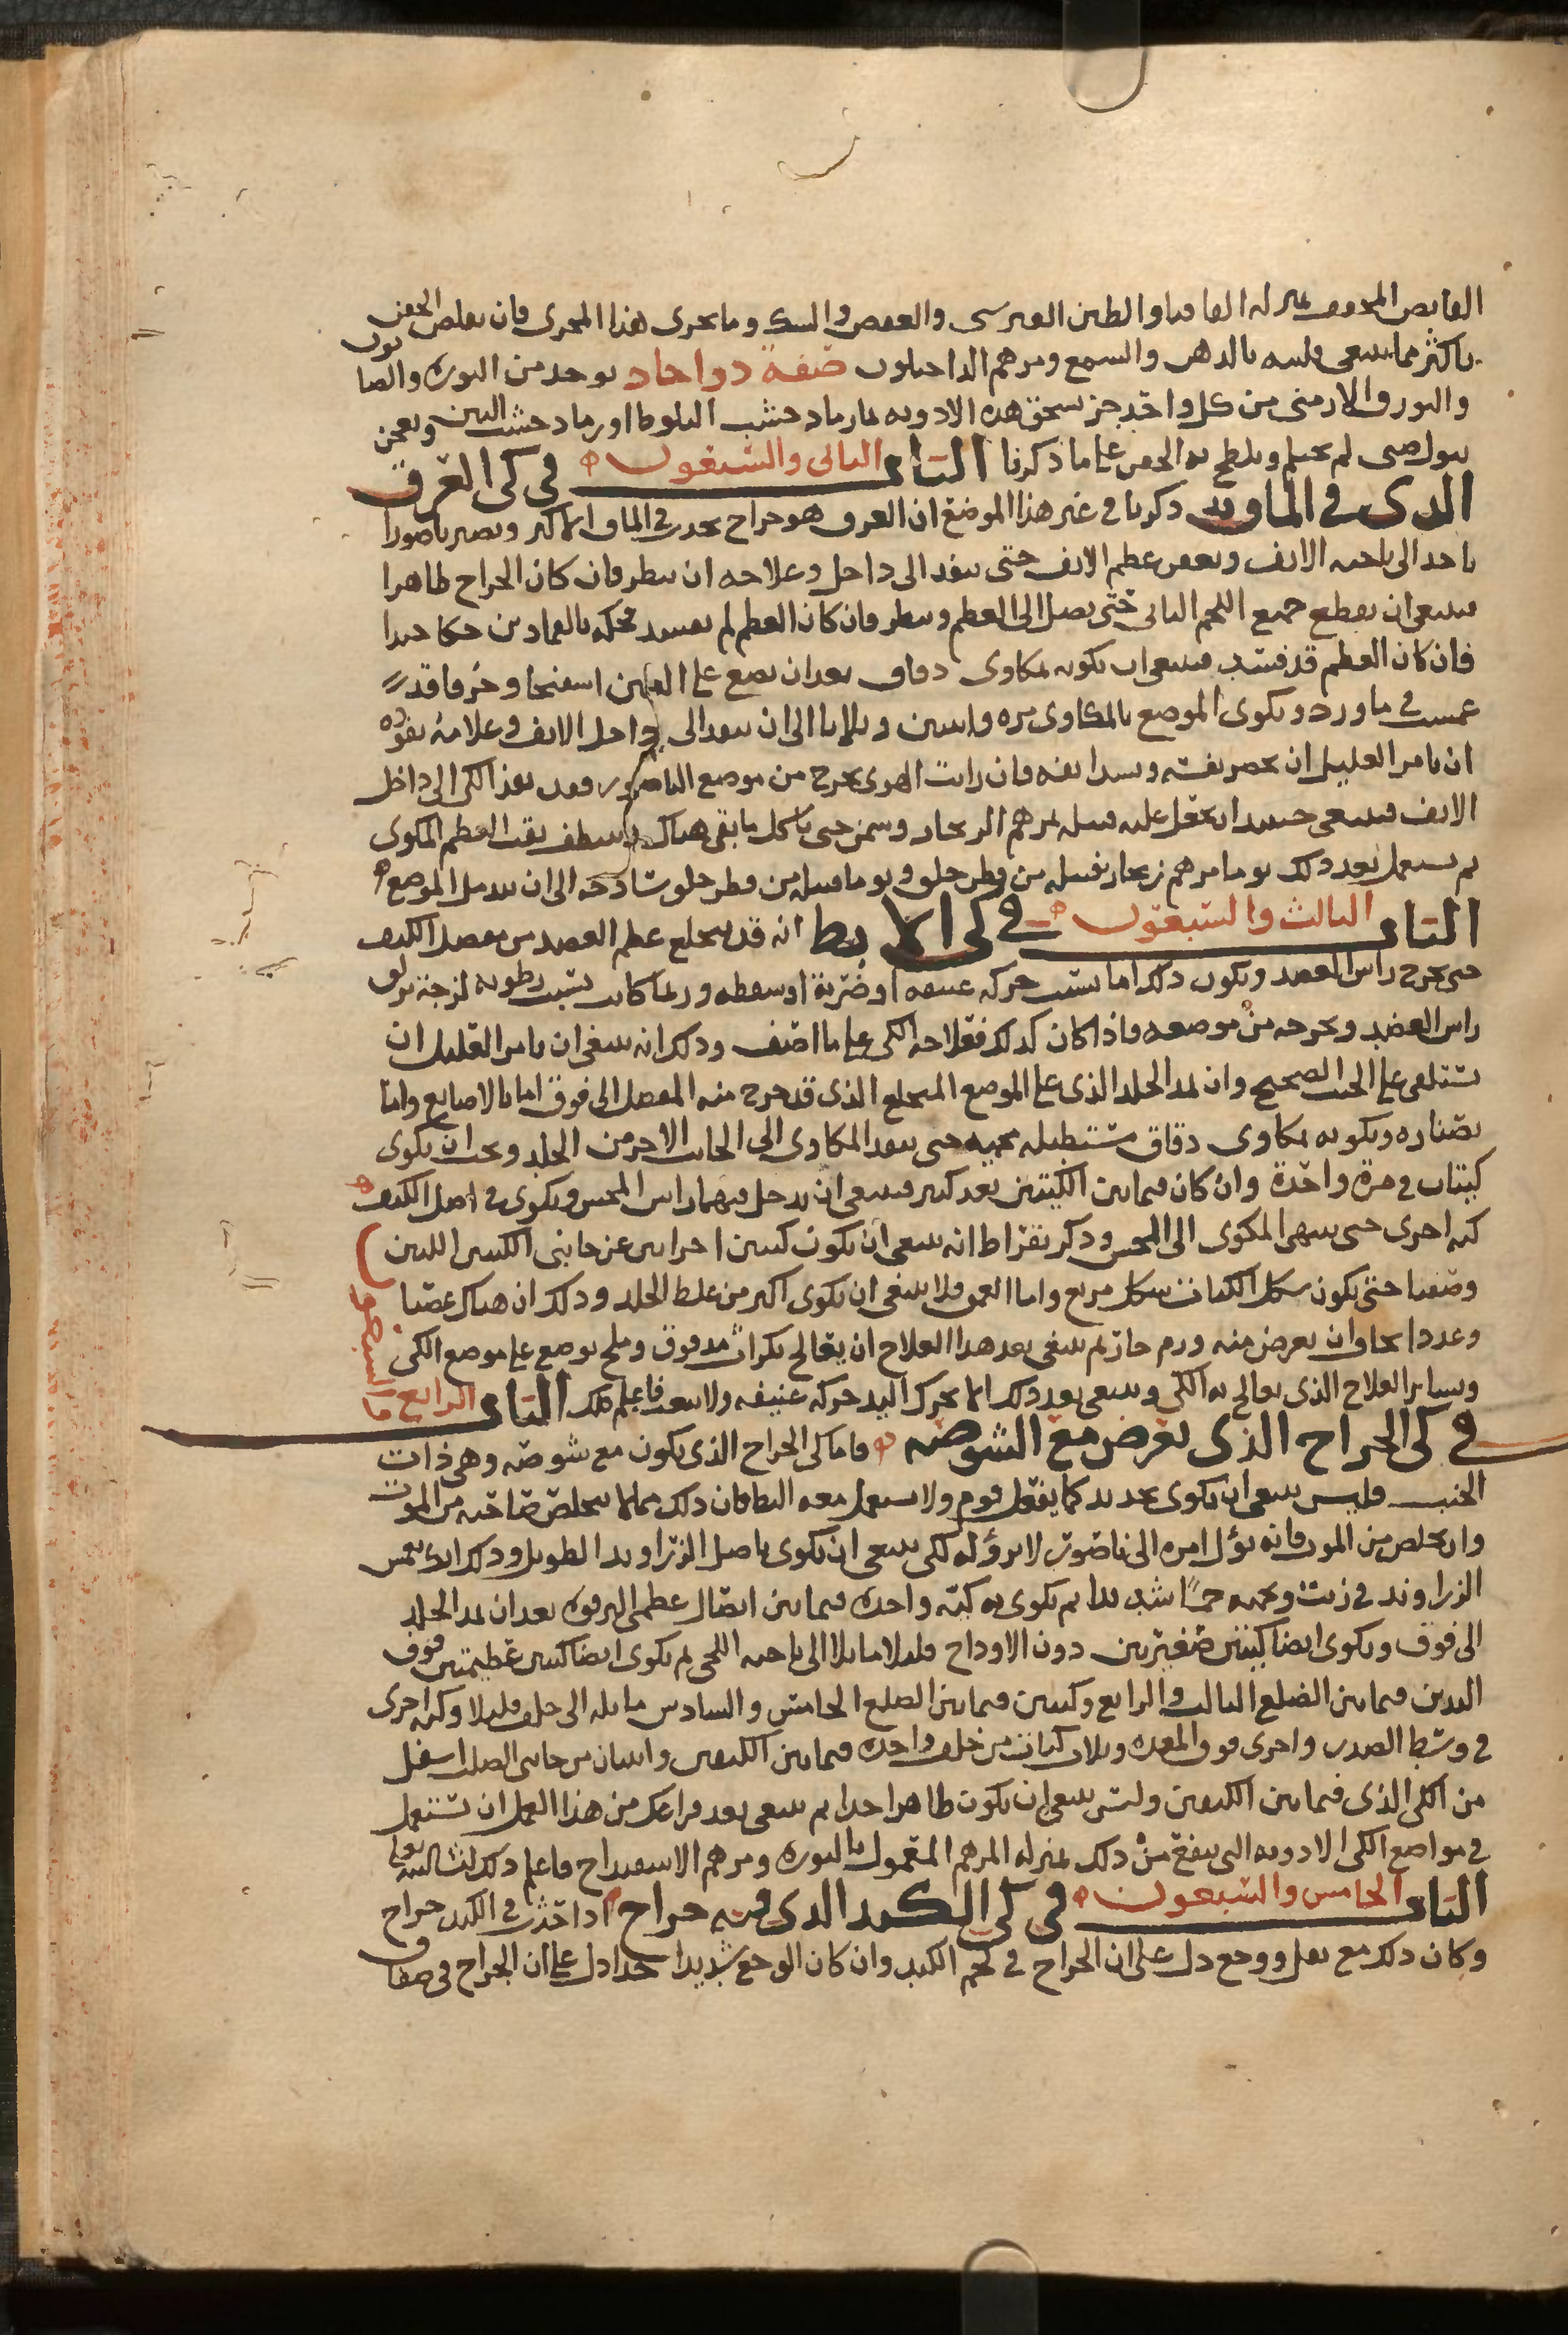 القابض المجفف بمنزلة القاقيا والطين القبرسي والعفص والسك وما يجري هذا المجرى فان تقلص الجفن
باكثر مما ينبغي فلينه بالدهن والشمع ومرهم الداخيلون صفة دوا حاد يوخذ من النورة والصابون
والبورق الارمني من كل واحد جز يسحق هذه الادويه بما رماد خشب البلوط او رماد خشب التين ويعجن
ببول صبي لم يحتلم ويلطخ به الجفن على ما ذكرنا الباب الثاني والسبعون في كي الغرب
الذي في الماق ذكرنا في غير هذا الموضع ان الغرب هو خراج يحدث في الماق الاكبر ويصير ناصورا
ياخذ الى ناحية الانف ويعفن عظم الانف حتى ينفذ الى داخل وعلاجه ان ينظر فان كان الخراج ظاهرا
فينبغي ان يقطع جميع اللحم الثاني حتى يصل الى العظم وينظر فان كان العظم لم يفسد فحكه بالقمادين حكا جيدا
فان كان العظم قد فسد فينبغي ان تكويه بمكاوي دقاق بعد ان تضع على العين اسفنجا وخرقا قد
غمست في ماورد ويكوى الموضع بالمكاوي مره واثنين وثلاثا الى ان ينفذ الى داخل الانف وعلامة نفوذه
ان تامر العليل ان يحصر نفسه ويسد انفه فان رايت الهوى يخرج من موضع الناصور فقد نفذ الكي الى داخل
الانف فينبغي حينيذ ان تجعل عليه فتيله بمرهم الزنجار وسمن حتى ياكل ما بقي هناك وينظف بقيت العظم المكوي
ثم تستعمل بعد ذلك يوما مرهم زنجار بفتيله من قطن خلق ويوما فتيله من قطن خلق بشادنه الى ان يندمل الموضع
الباب الثالث والسبعون في كي الابط انه قد ينخلع عظم العضد من مفصل الكتف
حتى يخرج راس العضد ويكون ذلك اما بسبب حركه عنيفه او ضربة او سقطه وربما كانت بسبب رطوبه لزجة تزلق
راس العضد وتخرجه من موضعه فاذا كان كذلك فعلاجه الكي على ما اصف وذلك انه ينبغي ان تامر العليل ان
يستلقي على الجنب الصحيح وان تمد الجلد الذي على الموضع المنخلع الذي قد خرج منه المفصل الى فوق اما بالاصابع واما
بصناره وتكويه بمكاوي دقاق مستطيله محميه حتى ينفذ المكاوي الى الجانب الاخر من الجلد ويجب ان يكوى
كيتان في مرة واحدة وان كان فيما بين الكيتين بعد كبير فينبغي ان تدخل فيهما راس المجس ويكوى في اصل الكتف
كيه اخرى حتى ينتهي المكوى الى المجس وذكر بقراط انه ينبغي ان يكون كيتين اخراتين عن جانبي الكيتين اللتين
وصفنا حتى يكون شكل الكيات شكل مربع واما العمق فلا ينبغي ان يكوى اكثر من غلظ الجلد وذلك ان هناك عصبا
وغددا يخاف ان يعرض منه ورم حار ثم ينبغي بعد هذا العلاج ان يعالج بكراث مدقوق وملح يوضع على موضع الكي
وساير العلاج الذي يعالج به الكي وينبغي بعد ذلك الا يحرك اليد حركه عنيفه ولا تتعب فاعلم ذلك الباب الرابع والسبعون
في كي الخراج الذي يعرض مع الشوصه فاما كي الخراج الذي يكون مع شوصه وهي ذات
الجنب فليس ينبغي ان يكوى بحديد كما يفعل قوم ولا يستعمل معه البط فان ذلك مما لا يتخلص صاحبه من الموت
وان تخلص من الموت فانه يؤل امره الى ناصور لا برؤ له لكي ينبغي ان يكوى باصل الزراوند الطويل وذلك انك تغمس
الزراوند في زيت وتحميه حميا شديدا ثم تكوي به كيه واحده فيما بين اتصال عظمي الترقوه بعد ان تمد الجلد
الى فوق ويكوى ايضا كيتين صغيرتين دون الاوداج قليلا مايلا الى ناحيه اللحي ثم يكوى ايضا كيتين عظيمتين فوق
الثديين فيما بين الضلع الثالث والرابع وكيتين فيما بين الضلع الخامس والسادس مايله الى خلف قليلا وكيه اخرى
في وسط الصدر واخرى فوق المعده وثلاث كيات من خلف واحده فيما بين الكتفين واثنان من جانبي الصلب اسفل
من الكي الذي فيما بين الكتفين وليس ينبغي ان يكون ظاهرا جدا ثم ينبغي بعد فراغك من هذا العمل ان تستعمل
في مواضع الكي الادويه التي تنفع من ذلك بمنزله المرهم المعمول بالنوره ومرهم الاسفيداج فاعلم ذلك ان شا الله تعالى
الباب الخامس والسبعون في كي الكبد الذي فيه خراج اذا حدث في الكبد خراج
وكان ذلك مع ثقل ووجع دل على ان الخراج في لحم الكبد وان كان الوجع شديدا جدا دل على ان الخراج في صفاق